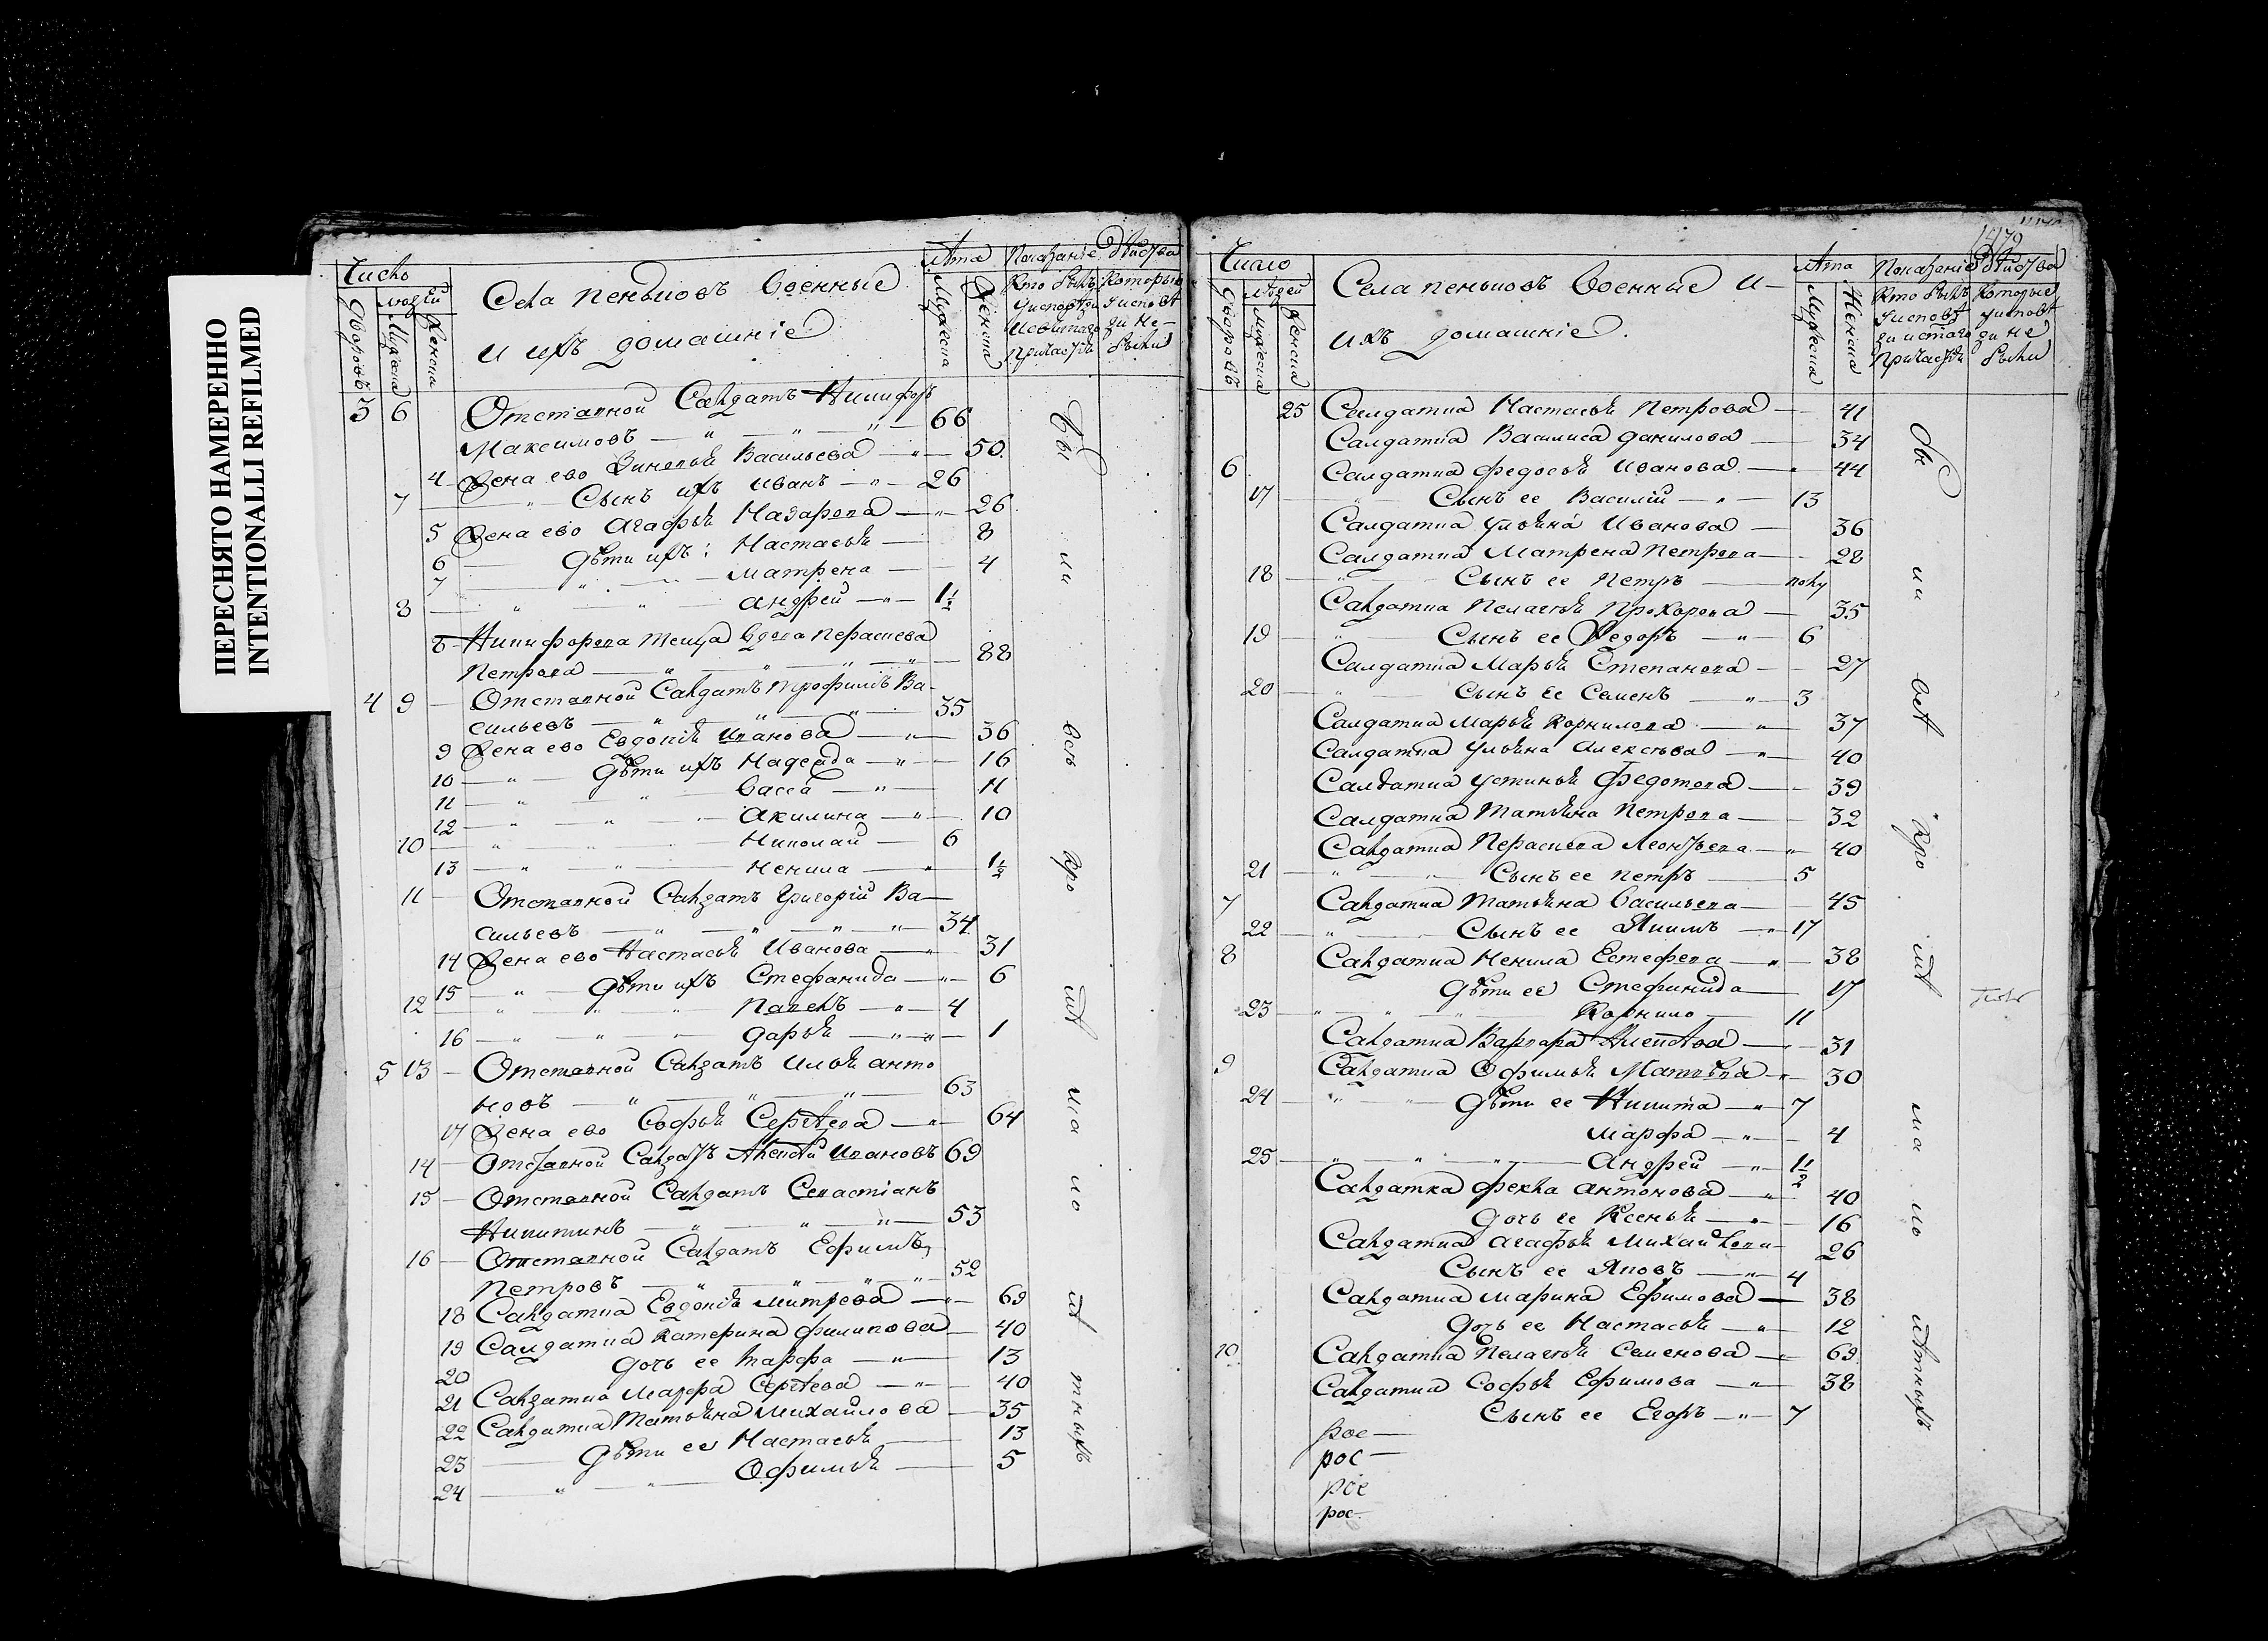 ПЕРЕСНЯТО НАМЕРЕННО
INTENTIONALLI REFILMED
Число
людей
Дворовъ
Мужеска
Женска
Села пеньковъ военные
и ихъ домашніе
лѣта
Мужеска
Женска
Показаніе дѣйства
Кто былъ у исповѣди и святаго причастія
Которые у исповѣди не были
3 6 Отставной Салдатъ Никифоръ
Максимовъ 66
4 Жена ево Зиновья Васильева 50
7 Сынъ ихъ Иванъ 26
5 Жена ево Агафья Назарова 26
6 Дѣти ихъ: Настасья 8
7 Матрена 4
8 Андрей 1½
8 Никифорова теща вдова Пераскева
Петрова 88
4 9 Отставной Салдатъ Трофимъ Ва-
сильевъ 35
9 Жена ево Евдокія Иванова 36
10 Дѣти ихъ Надежда 16
11 Васса 11
12 Акилина 10
10 Николай 6
13 Ненила 1½
11 Отставной Салдатъ Григорій Ва-
сильевъ 34
14 Жена ево Настасья Иванова 31
15 Дѣти ихъ Стефанида 6
12 Павелъ 4
16 Дарья 1
5 13 Отставной Салдатъ Илья Анто
новъ 63
17 Жена ево Софья Сергѣева 64
14 Отставной Салдатъ Алексѣй Ивановъ 69
15 Отставной Салдатъ Севастіанъ
Никитинъ 53
16 Отставной Салдатъ Ефимъ
Петровъ 52
18 Салдатка Евдокія Митрева 69
19 Салдатка Катерина Филипова 40
20 Дочь ее Марфа 13
21 Салдатка Марфа Сергѣева 40
22 Салдатка Татьяна Михайлова 35
23 Дѣти ее Настасья 13
24 Офимья 5
Бы ли всѣ кро мѣ ма ло лѣ тныхъ
1479
Число
людей
Дворовъ
Мужеска
Женска
Села пеньковъ военные и
ихъ домашніе.
лѣта
Мужеска
Женска
Показаніе дѣйства
Кто былъ у исповѣди и стаго причастія
Которые у исповѣди не были
25 Салдатка Настасья Петрова 41
Салдатка Василиса Данилова 34
6 Салдатка Федосья Иванова 44
17 Сынъ ее Василій 13
Салдатка Ульяна Иванова 36
Салдатка Матрена Петрова 28
18 Сынъ ее Петръ полу
Салдатка Пелагея Прохорова 35
19 Сынъ ее Федоръ 6
Салдатка Марья Степанова 27
20 Сынъ ее Семенъ 3
Салдатка Марья Корнилова 37
Салдатка Ульяна Алексѣева 40
Салдатка Устинья Федотова 39
Салдатка Татьяна Петрова 32
Салдатка Пераскева Леонтьева 40
21 Сынъ ее Петръ 5
7 Салдатка Татьяна Васильева 45
22 Сынъ ее Якимъ 17
8 Салдатка Ненила Естефева 38
Дѣти ее Стефинида 17
23 Корнило 11
Салдатка Варвара Алексѣева 31
9 Салдатка Офимья Матвѣева 30
24 Дѣти ее Никита 7
Марфа 4
25 Андрей 1½
Салдатка Фекла Антонова 40
Дочь ее Ксенья 16
Салдатка Агафья Михайлова 26
Сынъ ее Яковъ 4
Салдатка Марина Ефимова 38
Дочь ее Настасья 12
10 Салдатка Пелагея Семенова 69
Салдатка Софья Ефимова 38
Сынъ ее Егоръ 7
рос
рос
рос
рос
бы ли всѣ кро мѣ ма ло лѣтныхъ